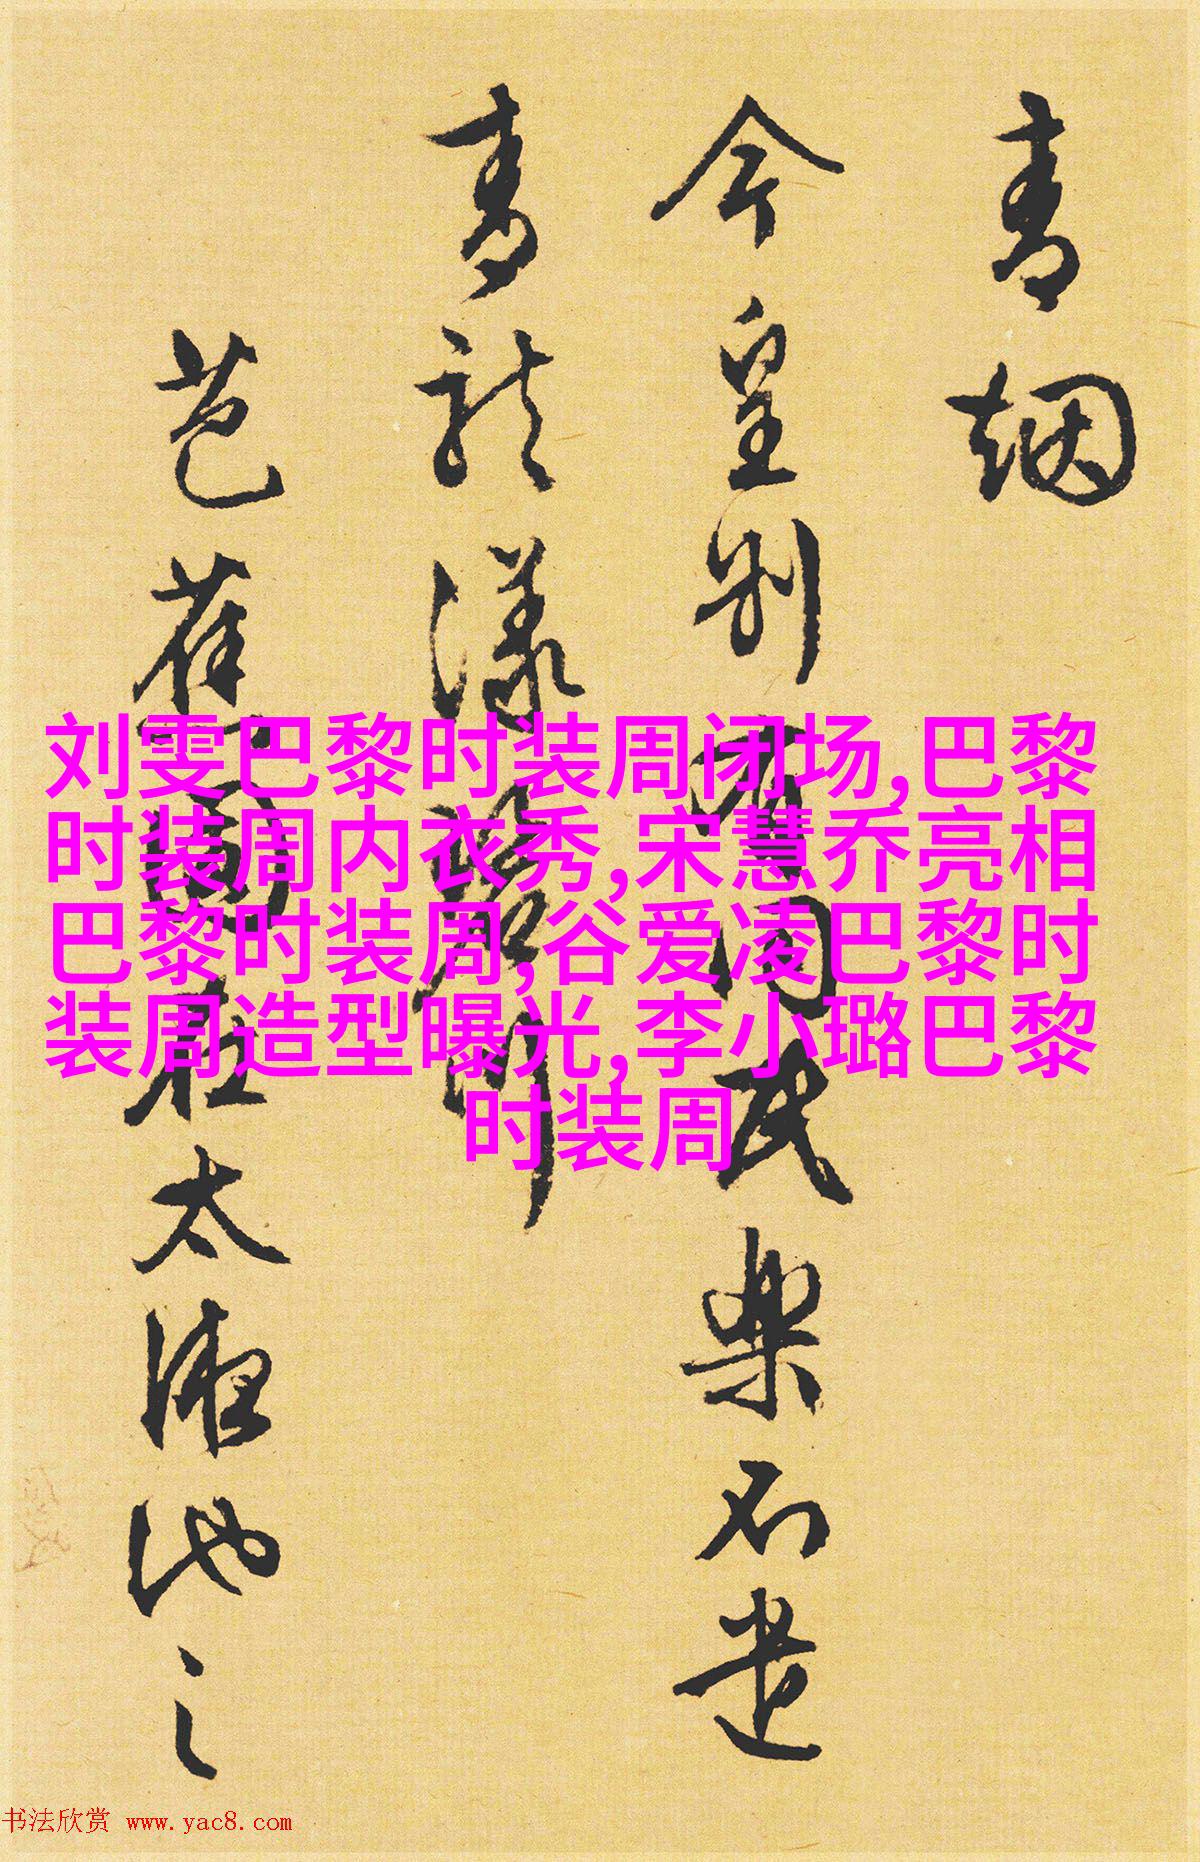 青烟
今皇别有同民楽不遣
青龍漾
芭蕉園在太液池之
刘雯巴黎时装周闭场,巴黎
时装周内衣秀,宋慧乔亮相
巴黎时装周,谷爱凌巴黎时
装周造型曝光,李小璐巴黎
时装周
书法欣赏 www.yac8.com